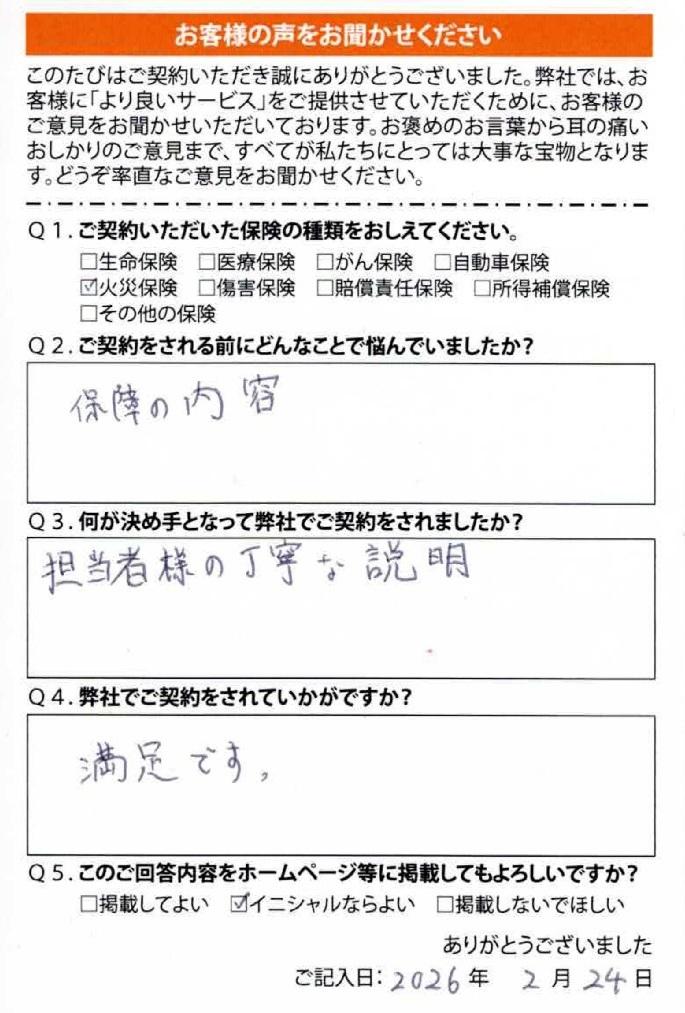 お客様の声をお聞かせください
このたびはご契約いただき誠にありがとうございました。弊社では、お
客様に「より良いサービス」をご提供させていただくために、お客様の
ご意見をお聞かせいただいております。お褒めのお言葉から耳の痛い
おしかりのご意見まで、すべてが私たちにとっては大事な宝物となりま
す。どうぞ率直なご意見をお聞かせください。
Q1.ご契約いただいた保険の種類をおしえてください。
□生命保険 □医療保険 □がん保険 □自動車保険
☑火災保険 □傷害保険 □賠償責任保険 □所得補償保険
□その他の保険
Q2.ご契約をされる前にどんなことで悩んでいましたか?
保障の内容
Q3.何が決め手となって弊社でご契約をされましたか?
担当者様の丁寧な説明
Q4.弊社でご契約をされていかがですか?
満足です。
Q5.このご回答内容をホームページ等に掲載してもよろしいですか?
□掲載してよい ☑イニシャルならよい □掲載しないでほしい
ありがとうございました
ご記入日:2026年 2月24日